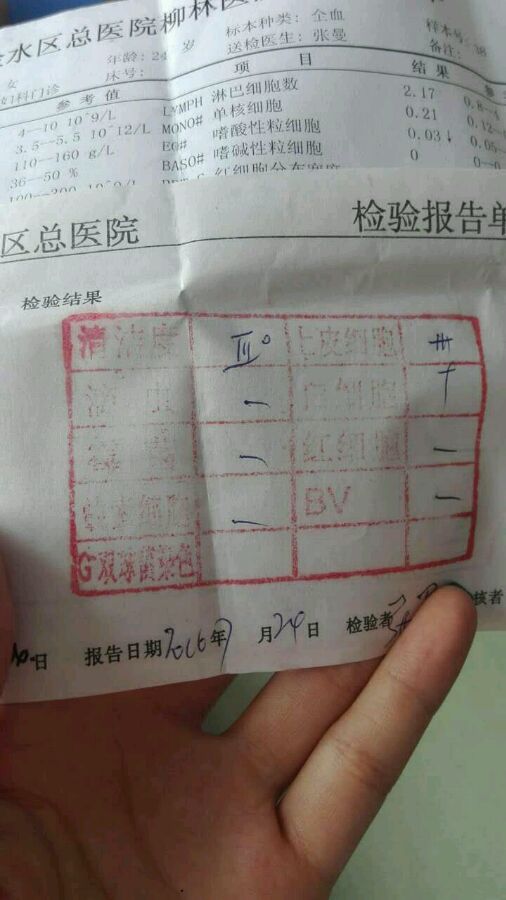 水区总医院柳林医
女 年龄:24 岁 标本种类:全血 样本号:38
妇科门诊 床号: 送检医生:张曼 备注:
参 考 值 项 目 结 果
4—10 10^9/L LYMPH 淋巴细胞数 2.17 0.8—4
3.5—5.5 10^12/L MONO# 单核细胞 0.21 0.12—
110—160 g/L EO# 嗜酸性粒细胞 0.03↓ 0.05
36—50 % BASO# 嗜碱性粒细胞 0 0—0
100—300 10^9/L 红细胞分布宽度
区总医院 检验报告单
检验结果
清洁度 III° 上皮细胞 卅
滴虫 — 白细胞 十
霉菌 — 红细胞 —
线索细胞 — BV —
G双球菌染色
日 报告日期2016年7月24日 检验者 核者